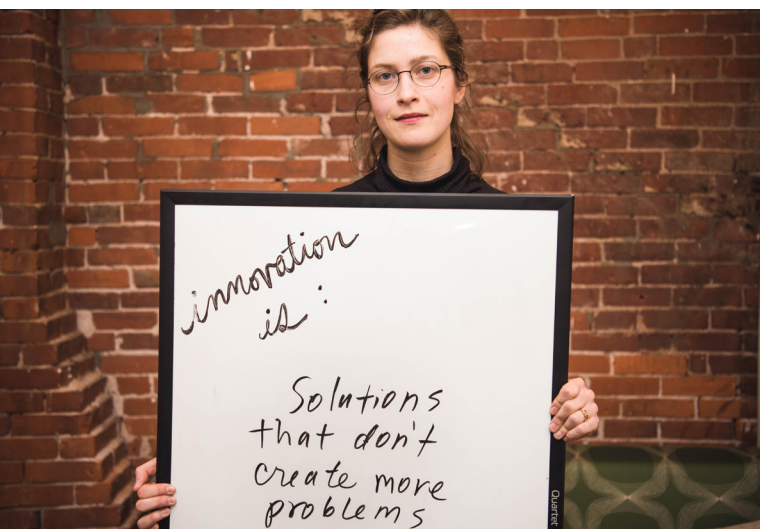 innovation
is:
Solutions
that don't
create more
problems
Quartet